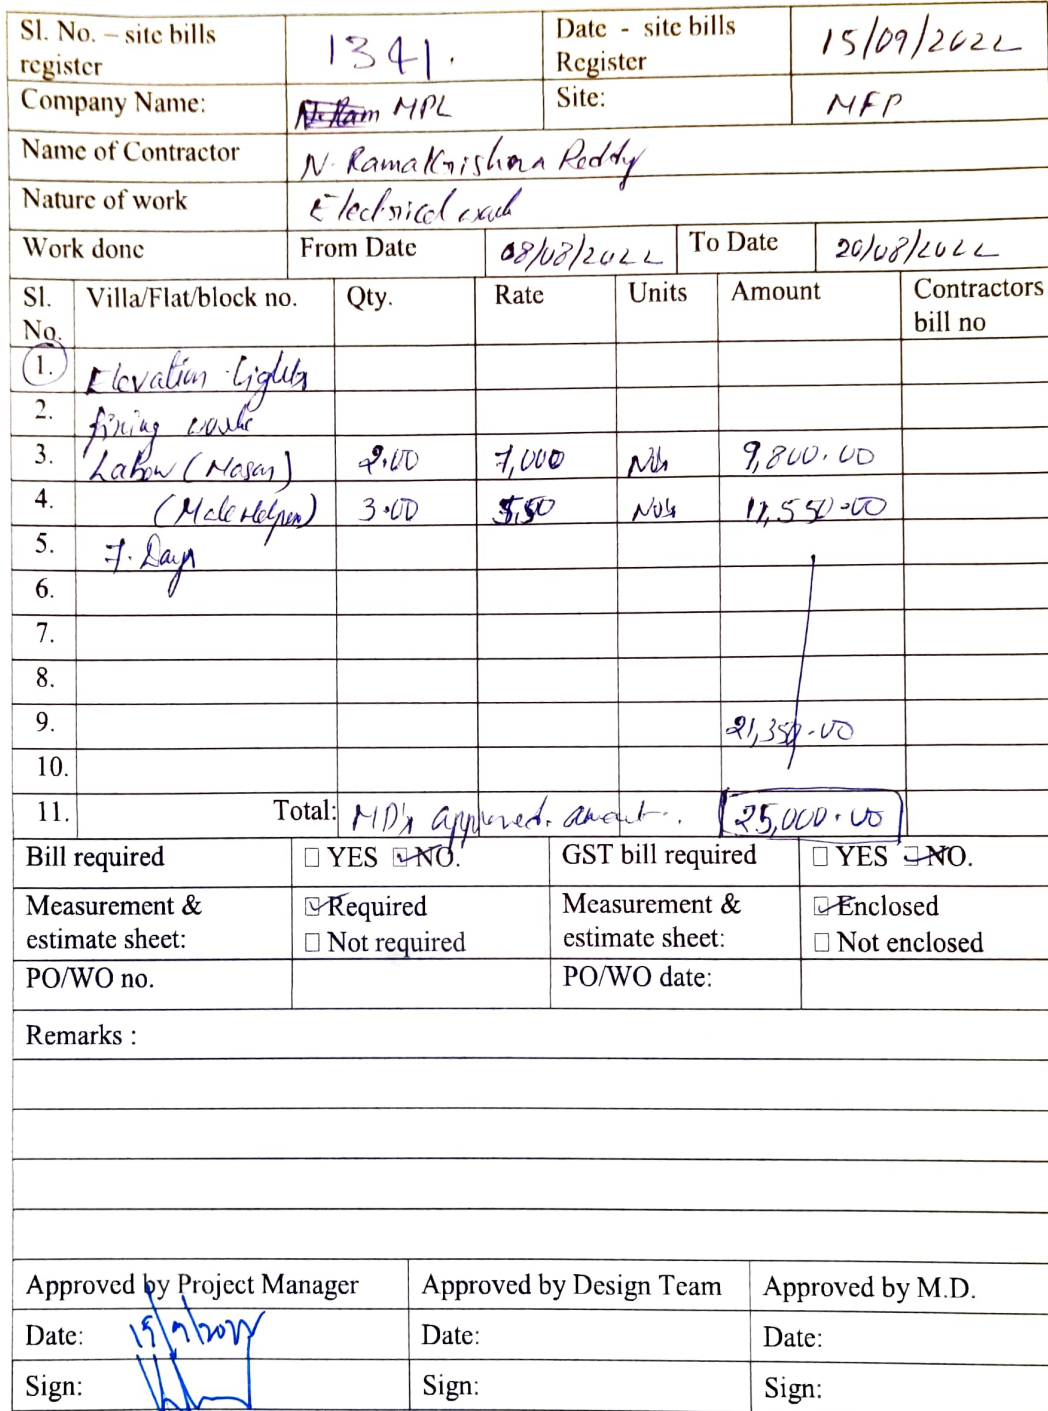 Sl. No. – site bills register 1341. Date - site bills Register 15/09/2022
Company Name: MPL Site: MFP
Name of Contractor N. RamaKrishna Reddy
Nature of work Electrical work
Work done From Date 08/08/2022 To Date 20/08/2022
Sl. No. Villa/Flat/block no. Qty. Rate Units Amount Contractors bill no
1. Elevation Lights
2. fixing work
3. Labour (Mason) 2.00 7,000 Nos 9,800.00
4. (Male Helper) 3.00 5,50 Nos 11,550.00
5. 7. Days
6.
7.
8.
9. 21,350.00
10.
11. Total: MD's approved. amount.. 25,000.00
Bill required □ YES ☑ NO. GST bill required □ YES ☑ NO.
Measurement & estimate sheet: ☑ Required □ Not required Measurement & estimate sheet: ☑ Enclosed □ Not enclosed
PO/WO no. PO/WO date:
Remarks :
Approved by Project Manager Approved by Design Team Approved by M.D.
Date: 15/9/2022 Date: Date:
Sign: Sign: Sign: